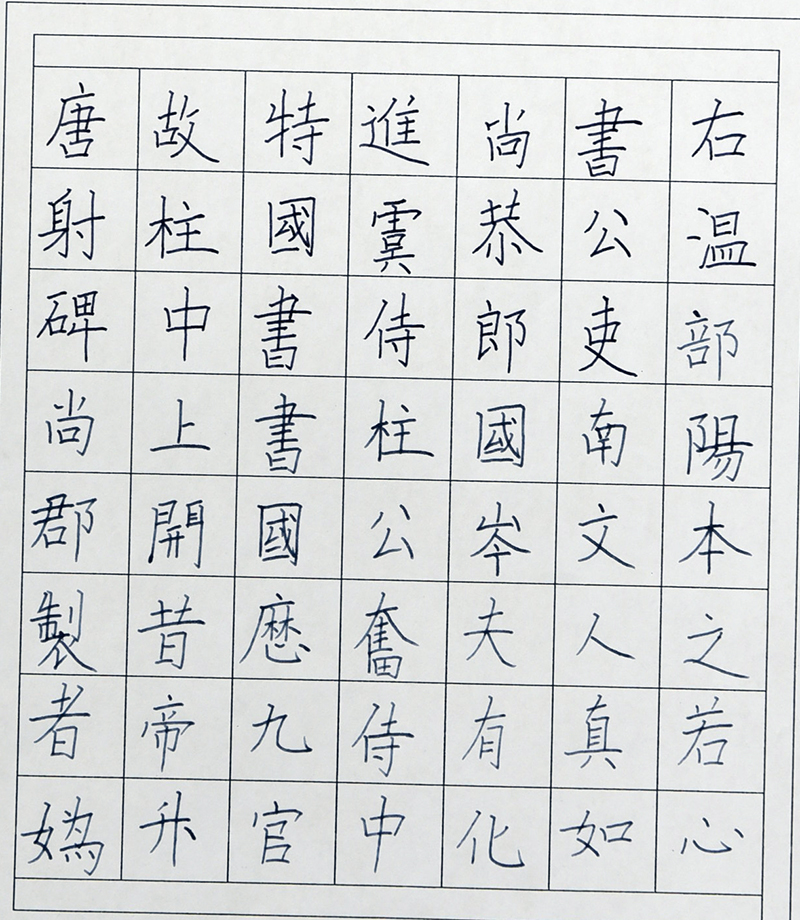 唐故特進尚書右
射柱國虞恭公温
碑中書侍郎吏部
尚上書柱國南陽
郡開國公岑文本
製昔奮夫人之
者帝九侍有真若
媯升官中化如心